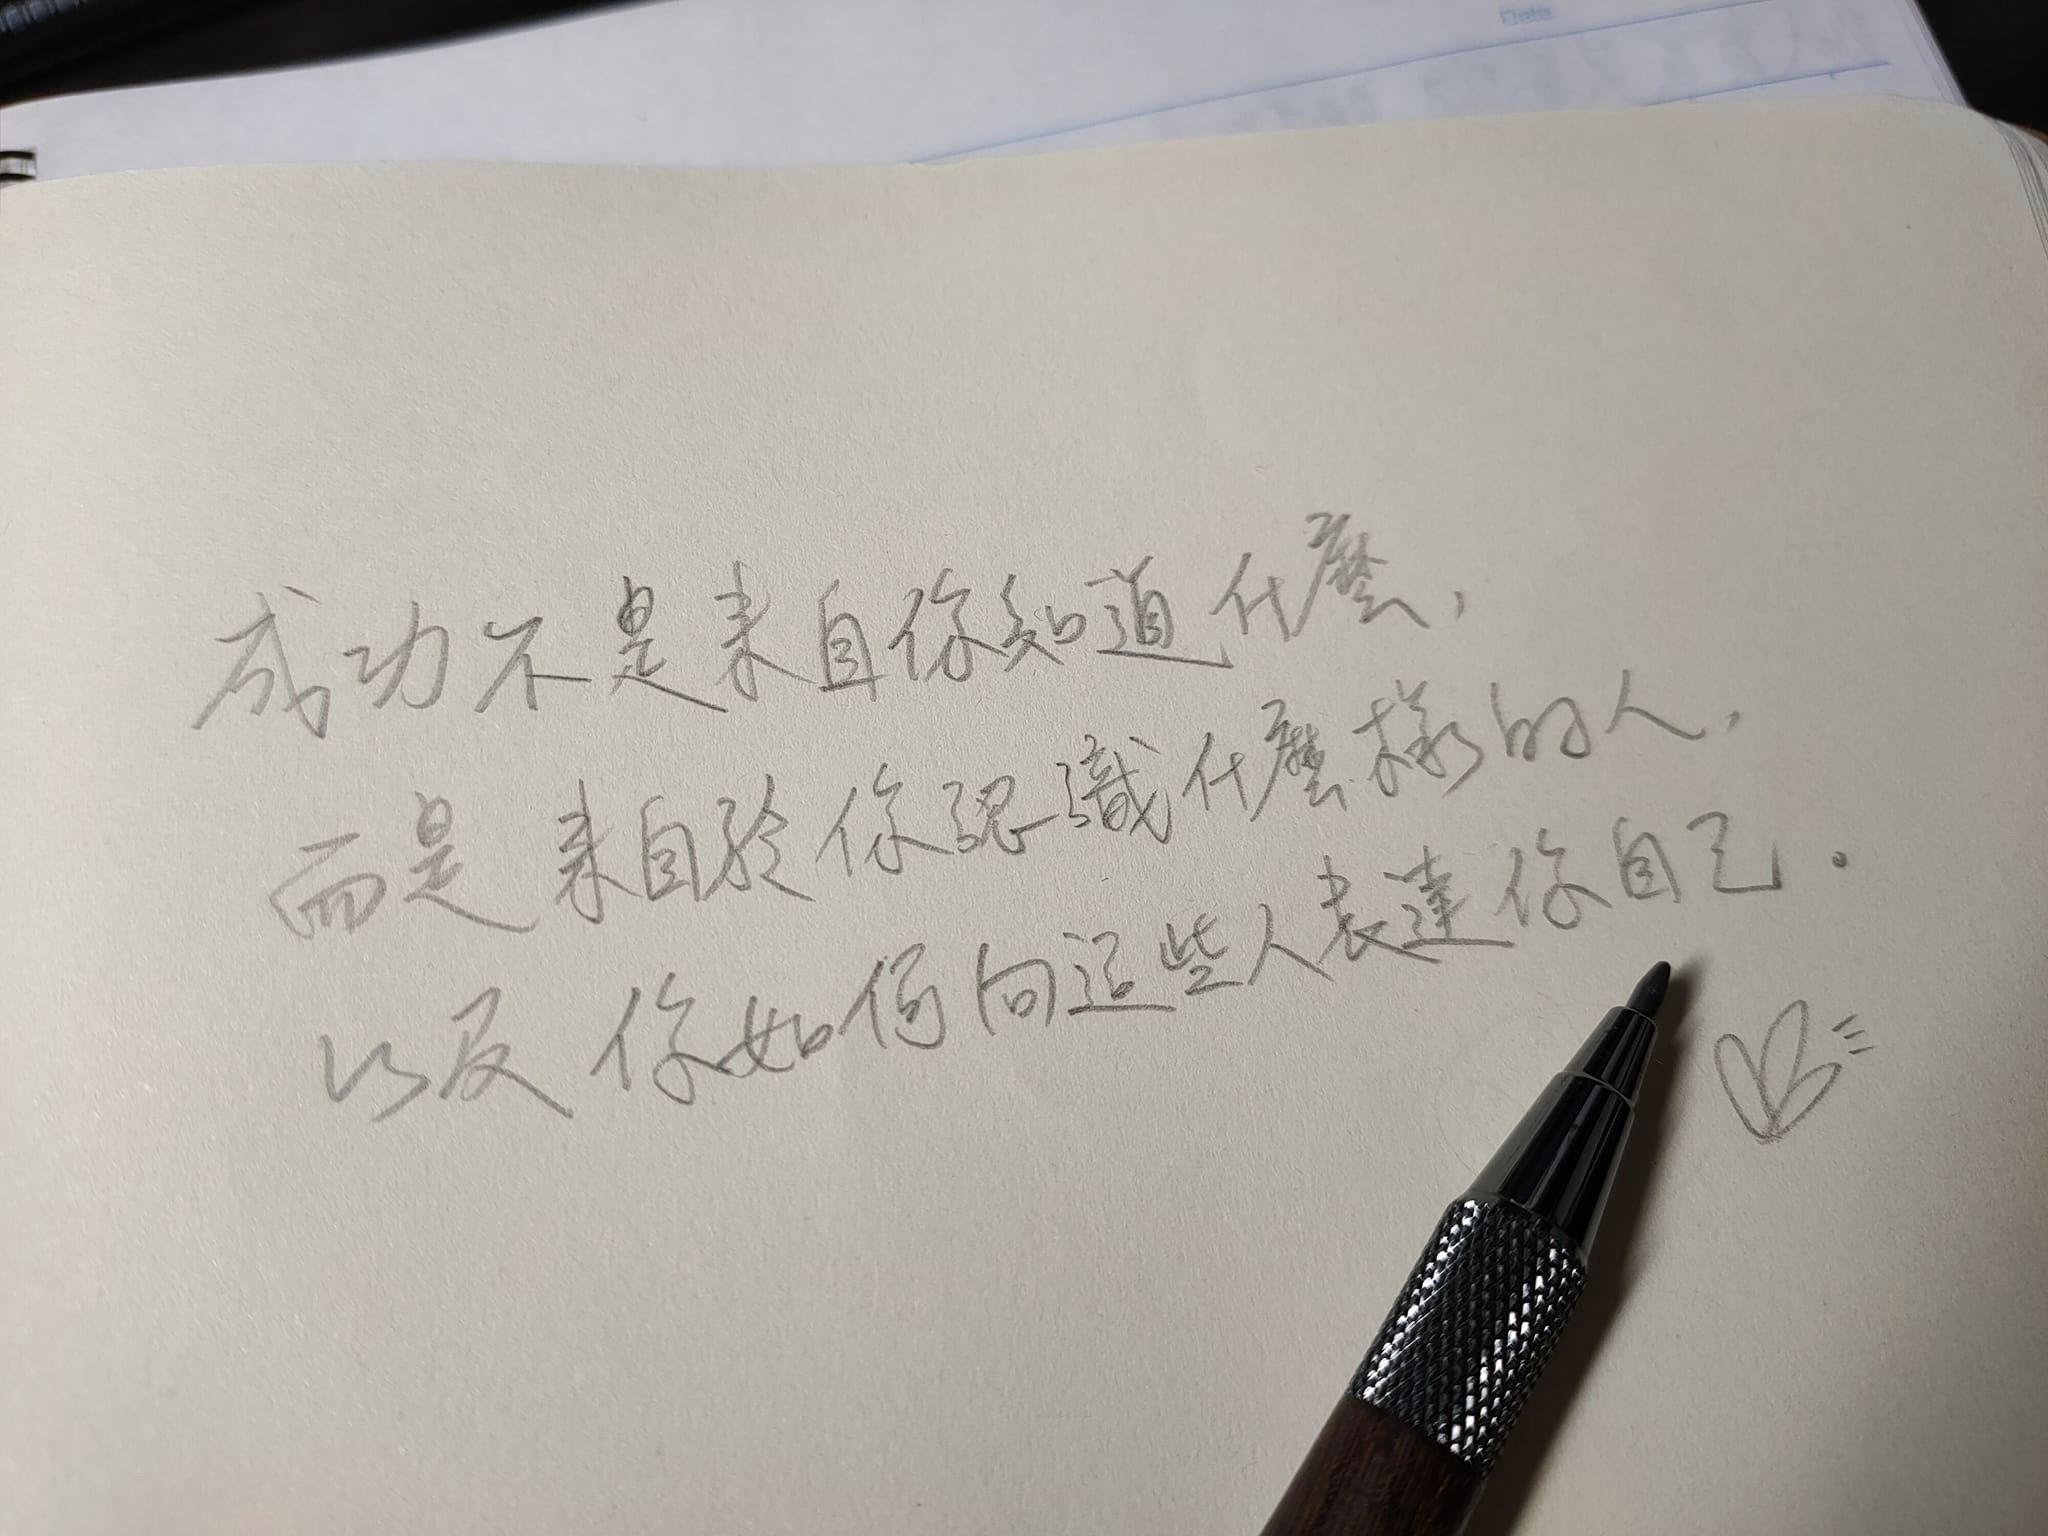 Date
成功不是來自你知道什麼,
而是來自於你認識什麼樣的人,
以及你如何向這些人表達你自己.